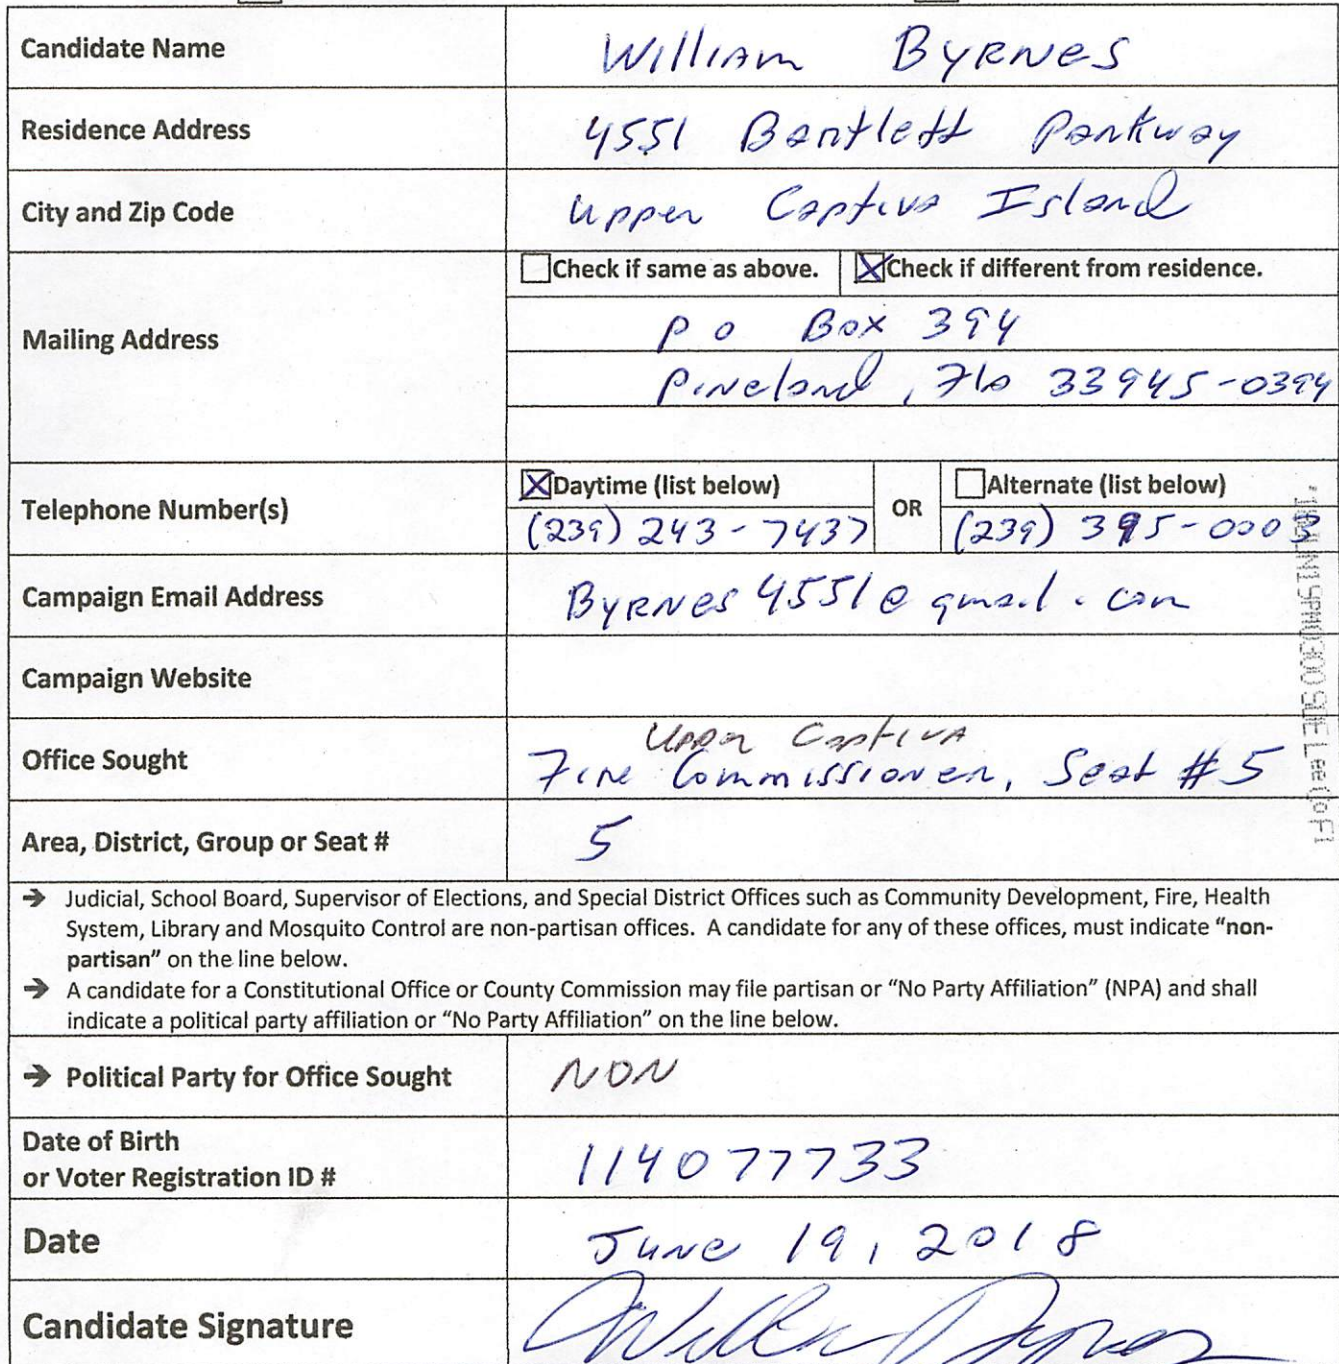 Candidate Name William Byrnes
Residence Address 4551 Bartlett Parkway
City and Zip Code Upper Captiva Island
☐Check if same as above. ☒Check if different from residence.
Mailing Address
PO Box 394
Pineland, Fla 33945-0394
Telephone Number(s)
☒Daytime (list below) OR ☐Alternate (list below)
(239) 243-7437 (239) 395-0003
Campaign Email Address Byrnes4551@gmail.com
Campaign Website
Upper Captiva
Office Sought Fire Commissioner, Seat #5
Area, District, Group or Seat # 5
→ Judicial, School Board, Supervisor of Elections, and Special District Offices such as Community Development, Fire, Health
System, Library and Mosquito Control are non-partisan offices. A candidate for any of these offices, must indicate "non-
partisan" on the line below.
→ A candidate for a Constitutional Office or County Commission may file partisan or "No Party Affiliation" (NPA) and shall
indicate a political party affiliation or "No Party Affiliation" on the line below.
→ Political Party for Office Sought NON
Date of Birth
or Voter Registration ID # 114077733
Date June 19, 2018
Candidate Signature William Byrnes
'18JUN19PM0300 SOE Lee Co Fl